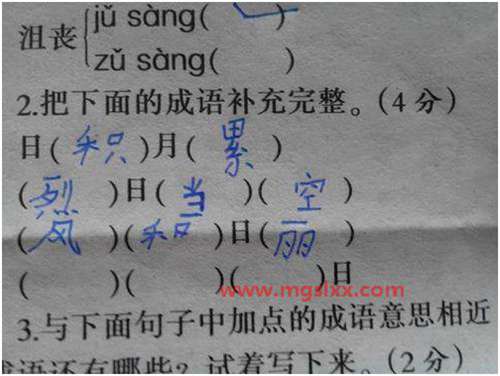 沮丧 jǔ sàng( )
zǔ sàng( )
2.把下面的成语补充完整。(4分)
日(积)月(累)
(烈)日(当)(空)
(风)(和)日(丽)
( )( )( )日
www.mgslxx.com
3.与下面句子中加点的成语意思相近
成语还有哪些?试着写下来。(2分)